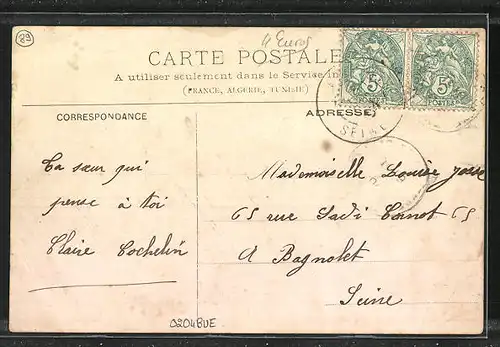 89
4 Euros
CARTE POSTALE
A utiliser seulement dans le Service in
(FRANCE, ALGERIE, TUNISIE)
5 5
POSTES
CORRESPONDANCE
ADRESSE
SEINE
Ta sœur qui
pense à toi
Claire Cochelin
Mademoiselle Louise
65 rue Sadi Carnot 65
A Bagnolet
Seine
0204BUE